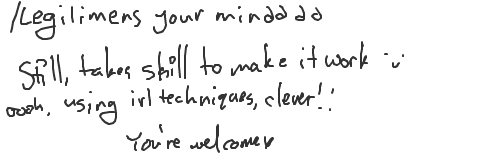 /Legilimens your mindddd
Still, takes skill to make it work :v
oooh, using irl techniques, clever!!
You're welcome